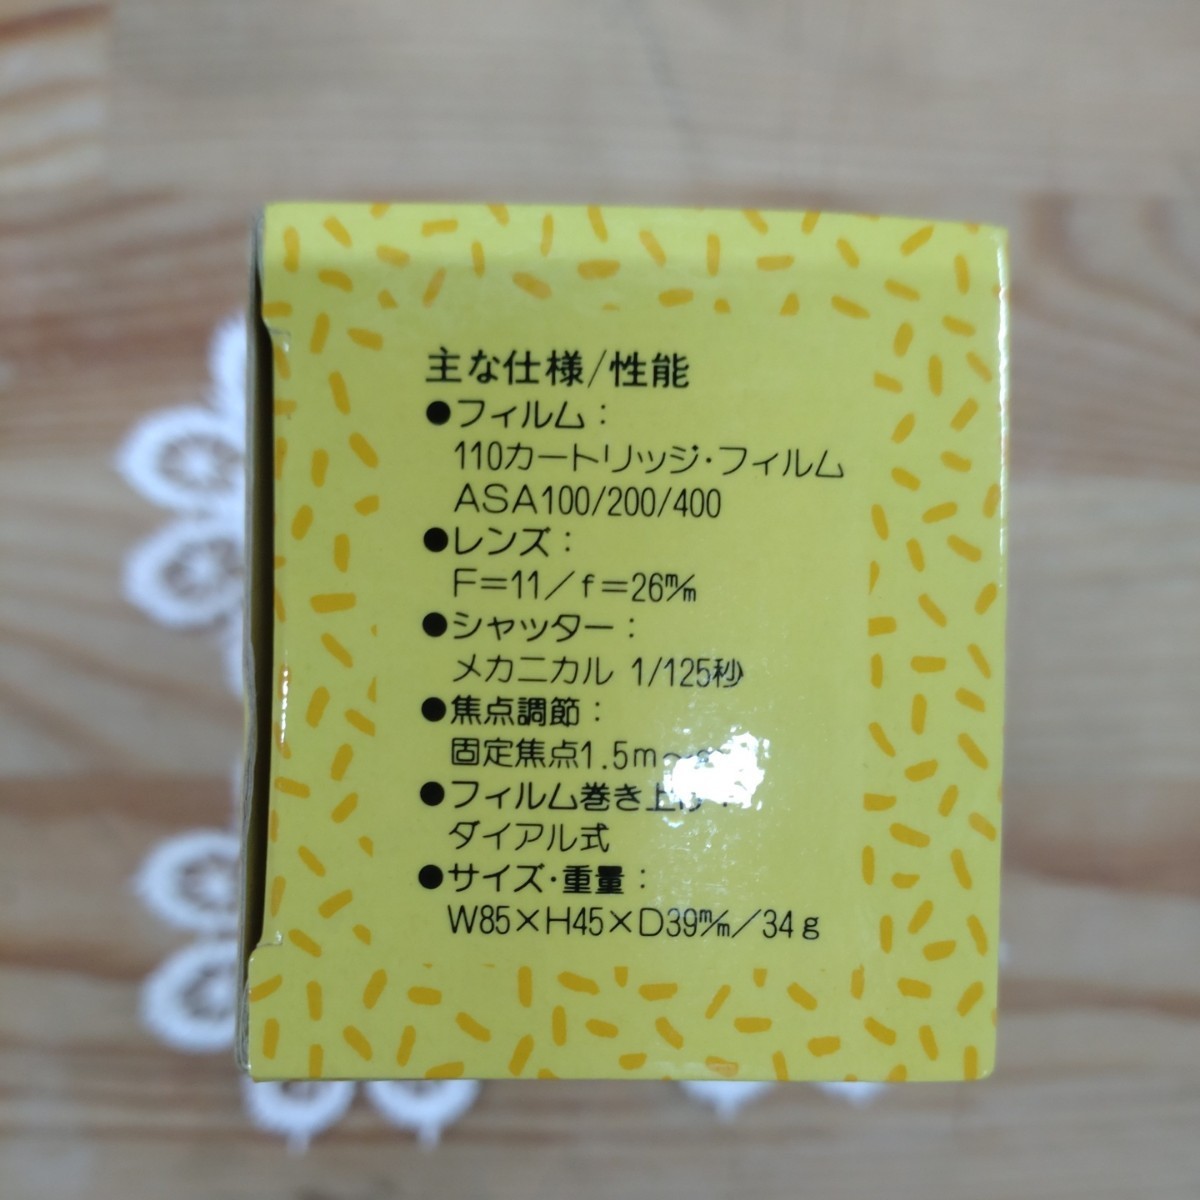 主な仕様/性能
●フィルム:
110カートリッジ・フィルム
ASA100/200/400
●レンズ:
F=11/f=26m/m
●シャッター:
メカニカル 1/125秒
●焦点調節:
固定焦点1.5m〜
●フィルム巻き上げ:
ダイアル式
●サイズ・重量:
W85×H45×D39m/m/34g